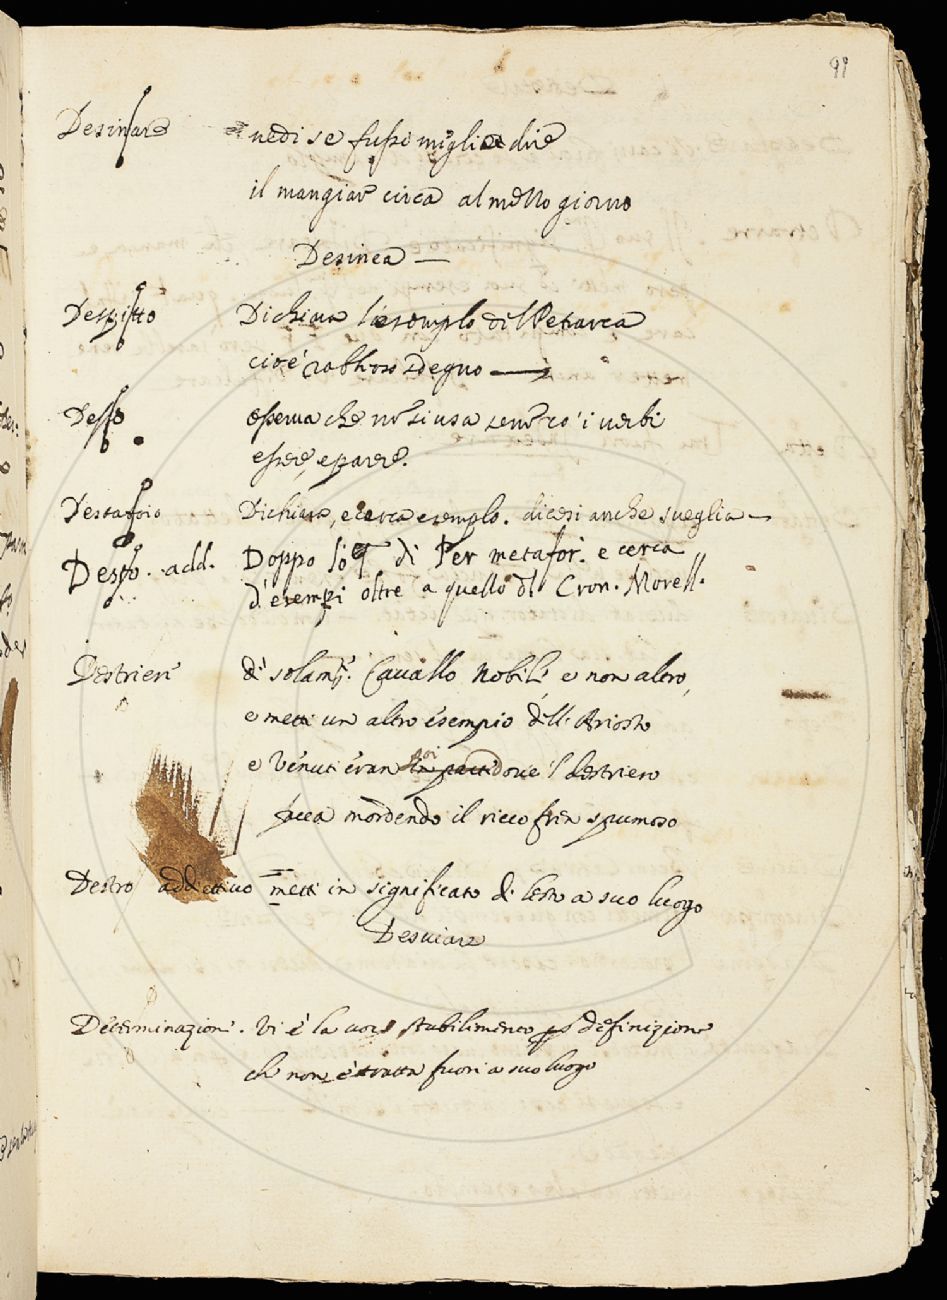 99
Desinare vedi se fussi miglior dire
il mangiar circa al mezzo giorno
Desinea —
Despitto Dichiara l'esemplo del Petrarca
cioè rabbioso sdegno —
Desso osserva che non si usa se non co' i verbi
essere, e parere.
Destatoio Dichiara, e cerca esemplo. dicesi anche sveglia —
Desto. add. Doppo di Per metafor. e cerca
d'esempi oltre a quello di Cron. Morell.
Destrieri di solam. Cavallo Nobile, e non altro,
e metti un altro esempio dell' Ariosto
e venuti eran poi dove 'l destriero
facea mordendo il ricco fren spumoso
Destro addiettivo metti in significato di lesto a suo luogo
Desviare
Determinazione. Vi è la voce stabilimento per definizione
che non è tratta fuori a suo luogo